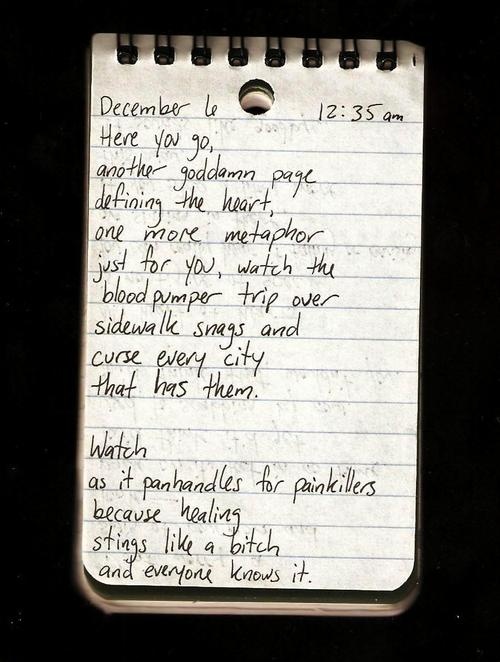 December 6 12:35 am
Here you go,
another goddamn page
defining the heart,
one more metaphor
just for you, watch the
bloodpumper trip over
sidewalk snags and
curse every city
that has them.
Watch
as it panhandles for painkillers
because healing
stings like a bitch
and everyone knows it.